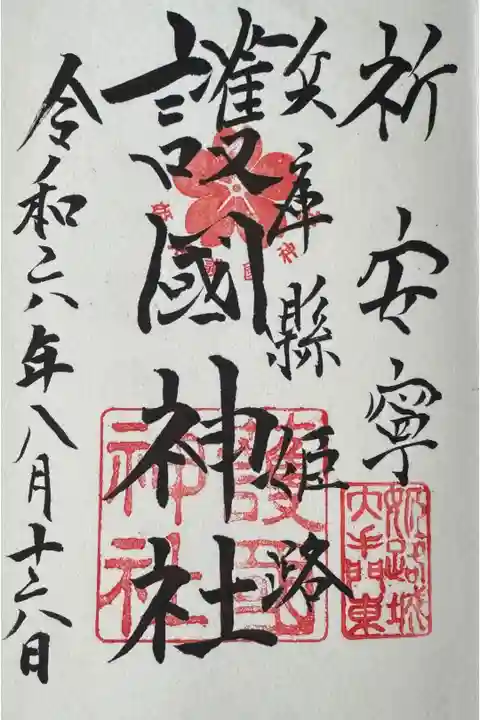 祈安寧
兵庫縣姫路
護國神社
令和六年八月十六日
護國
神社
姫路城
大手門東